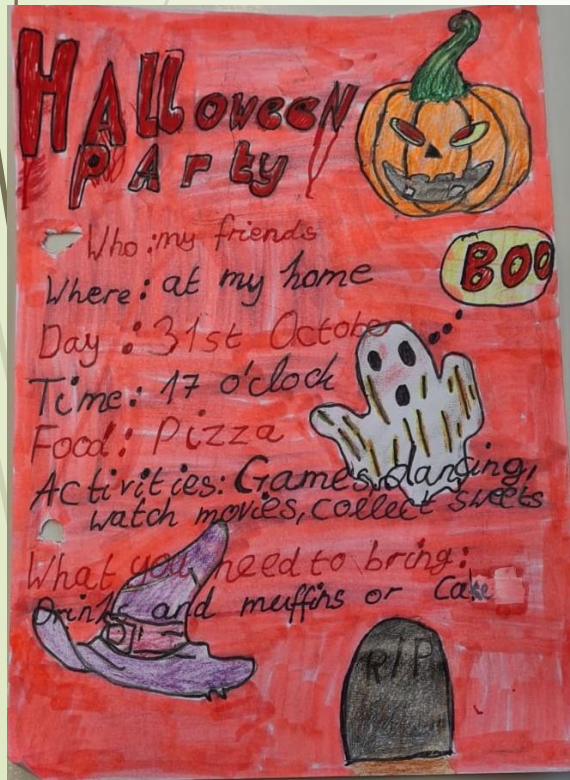 HAlloweeN
PArty
BOO
Who: my friends
Where: at my home
Day: 31st October
Time: 17 o'clock
Food: Pizza
Activities: Games, dancing,
watch movies, collect sweets
What you need to bring:
Drinks and muffins or Cake
RIP